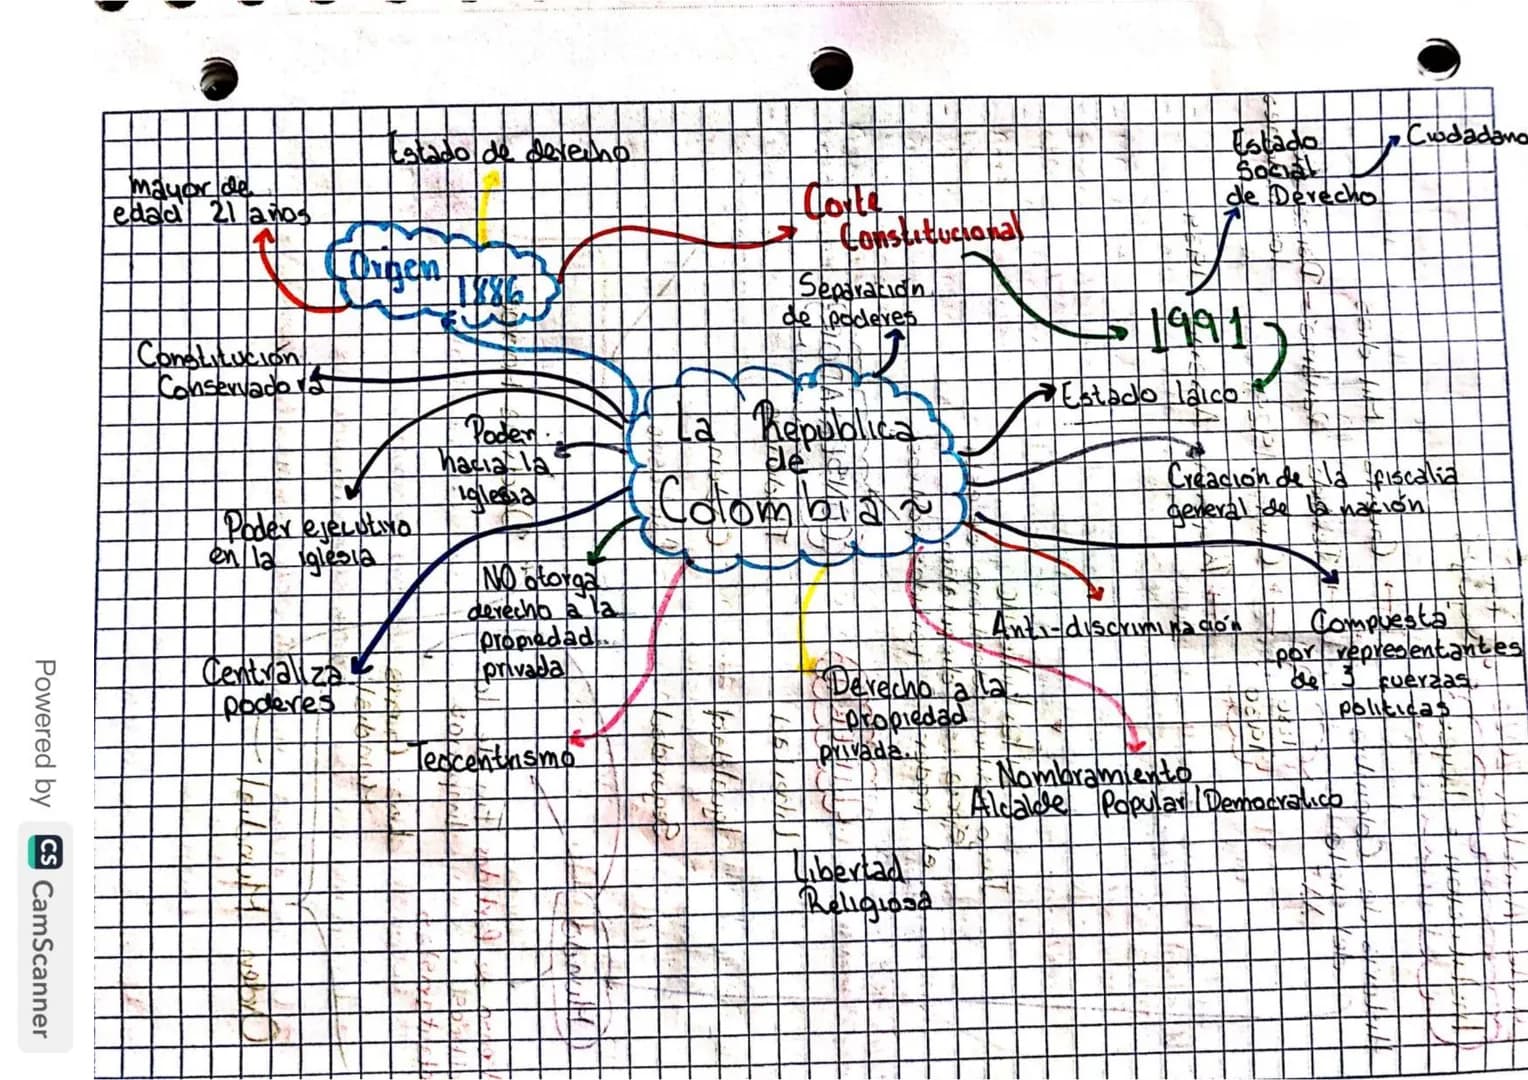 Estado de derecho
mayor de
edad 21 años
Origen
1886
Corte
Constitucional
Estado
Social
de Derecho
Ciudadano
Separación
de poderes
1991
Constitución
Conservadora
Estado láico
La República
de
Colombia
Poder
hacia la
iglesia
Creación de la fiscalia
general de la nación
Poder ejecutivo
en la iglesia
NO otorga
derecho a la
propiedad
privada
Anti-discriminación
Compuesta
por representantes
de 3 fuerzas
politicas
Centraliza
poderes
Derecho a la
propiedad
privada.
Teocentrismo
Nombramiento
Alcalde Popular/Democratico
Libertad
Religiosa
Powered by CS CamScanner